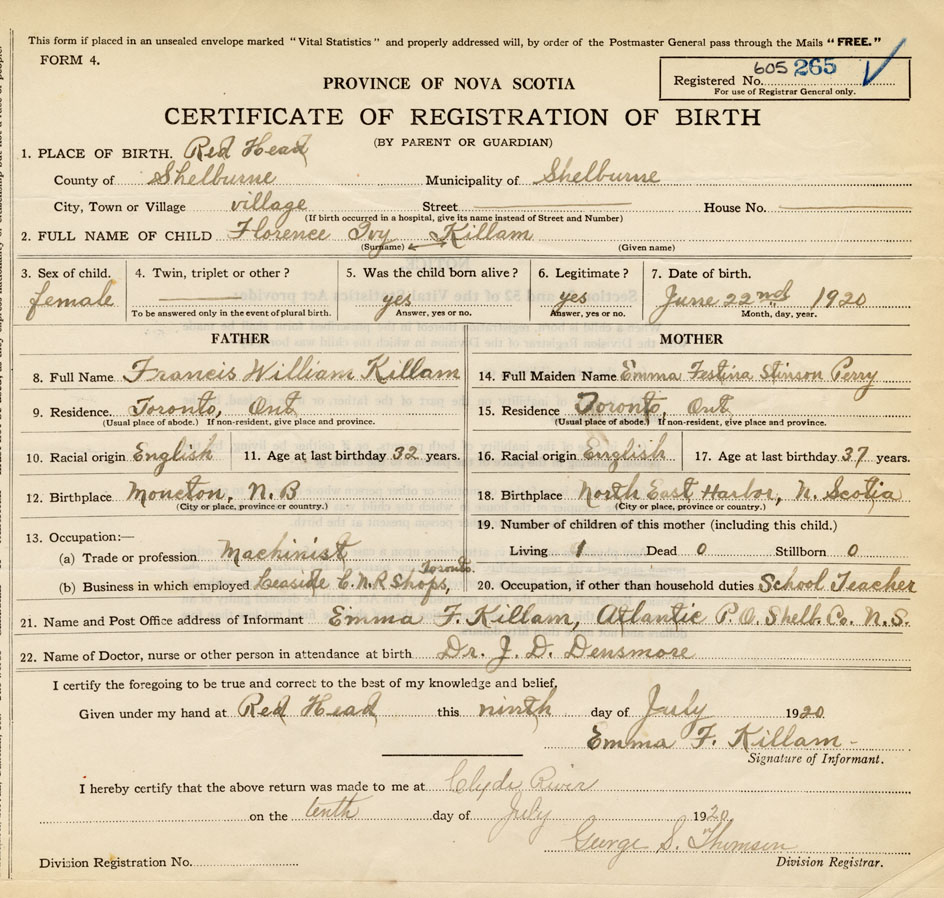 This form if placed in an unsealed envelope marked "Vital Statistics" and properly addressed will, by order of the Postmaster General pass through the Mails "FREE."
FORM 4.
605 265
Registered No.
For use of Registrar General only.
PROVINCE OF NOVA SCOTIA
CERTIFICATE OF REGISTRATION OF BIRTH
(BY PARENT OR GUARDIAN)
1. PLACE OF BIRTH. Red Head
County of Shelburne Municipality of Shelburne
City, Town or Village village Street House No.
(If birth occurred in a hospital, give its name instead of Street and Number)
2. FULL NAME OF CHILD Florence Ivy Killam
(Surname) (Given name)
3. Sex of child. 4. Twin, triplet or other? 5. Was the child born alive? 6. Legitimate? 7. Date of birth.
female yes yes June 22nd 1920
To be answered only in the event of plural birth. Answer, yes or no. Answer, yes or no. Month, day, year.
FATHER MOTHER
8. Full Name Francis William Killam 14. Full Maiden Name Emma Festina Stinson Perry
9. Residence. Toronto, Ont 15. Residence Toronto, Ont
(Usual place of abode.) If non-resident, give place and province. (Usual place of abode.) If non-resident, give place and province.
10. Racial origin English 11. Age at last birthday 32 years. 16. Racial origin English 17. Age at last birthday 37 years.
12. Birthplace Moncton, N.B 18. Birthplace North East Harbor, N. Scotia
(City or place, province or country.) (City or place, province or country.)
13. Occupation:— 19. Number of children of this mother (including this child.)
(a) Trade or profession Machinist Living 1 Dead 0 Stillborn 0
(b) Business in which employed Leaside C.N.R Shops, Toronto. 20. Occupation, if other than household duties School Teacher
21. Name and Post Office address of Informant Emma F. Killam, Atlantic P.O. Shelb. Co. N.S.
22. Name of Doctor, nurse or other person in attendance at birth Dr. J. D. Densmore
I certify the foregoing to be true and correct to the best of my knowledge and belief,
Given under my hand at Red Head this ninth day of July 1920
Emma F. Killam
Signature of Informant.
I hereby certify that the above return was made to me at Clyde River
on the tenth day of July 1920
George S. Thomson
Division Registration No. Division Registrar.